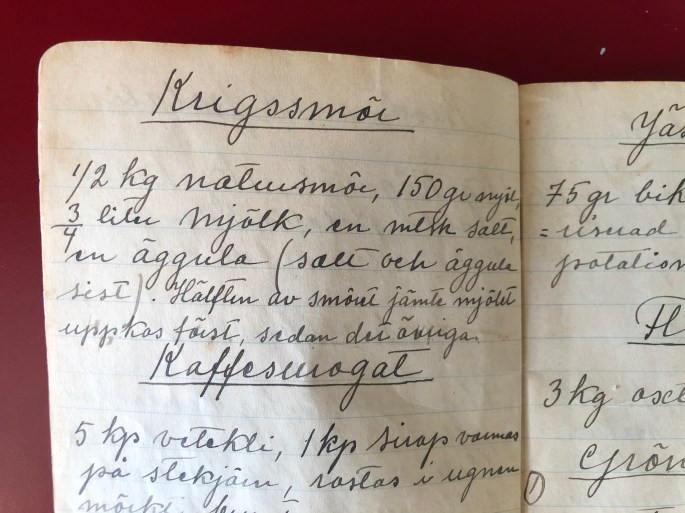 Krigssmör
1/2 kg natursmör, 150 gr mjöl,
3/4 liter mjölk, en mtsk salt,
en äggula (salt och äggula
sist). Hälften av smöret jämte mjölet
uppkas först, sedan det övriga.
Kaffesurogat
5 kp vetekli, 1 kp sirap varmas
på stekjärn, rostas i ugnen
75 gr
=
3 kg
1